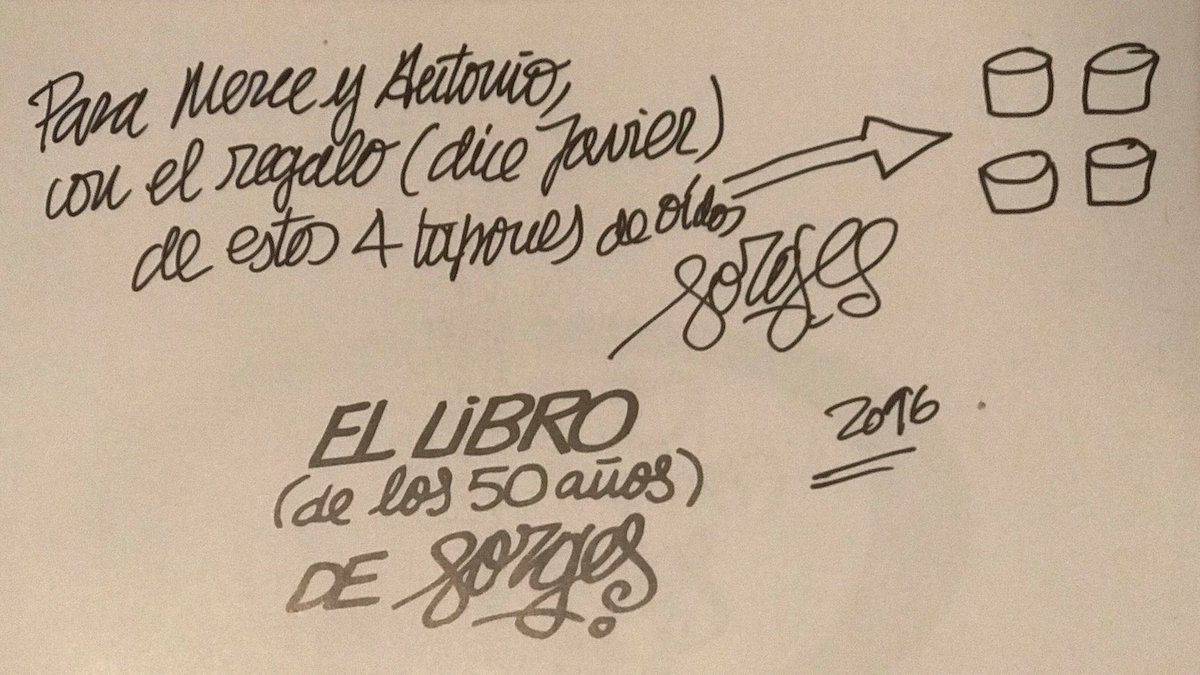 Para Merce y Antonio,
con el regalo (dice Javier)
de estos 4 tapones de oídos
Forges
2016
EL LiBRO
(de los 50 años)
DE Forges